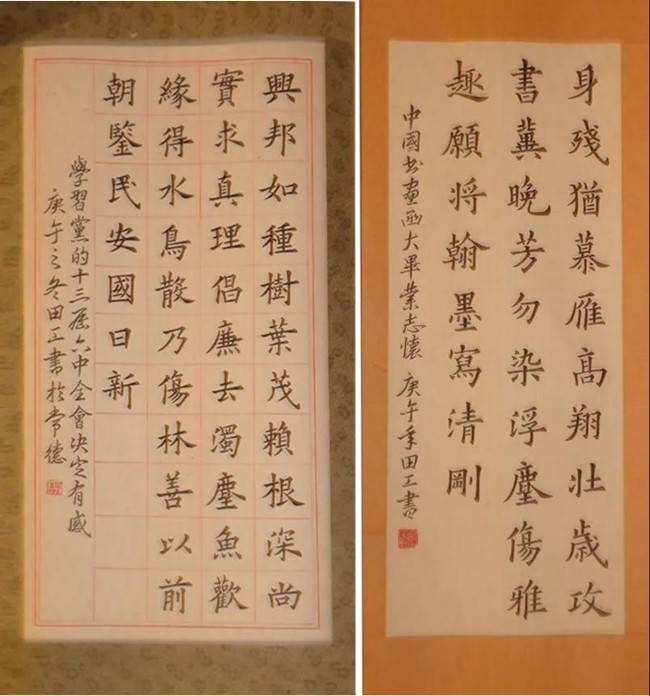 興邦如種樹葉茂賴根深尚
實求真理倡廉去濁塵魚歡
緣得水鳥散乃傷林善以前
朝鑒民安國日新
學習黨的十三屆六中全會決定有感
庚午之冬田工書於常德
身殘猶慕雁高翔壯歲攻
書冀晚芳勿染浮塵傷雅
趣願將翰墨寫清剛
中國书畫函大畢業志懷 庚午年田工書